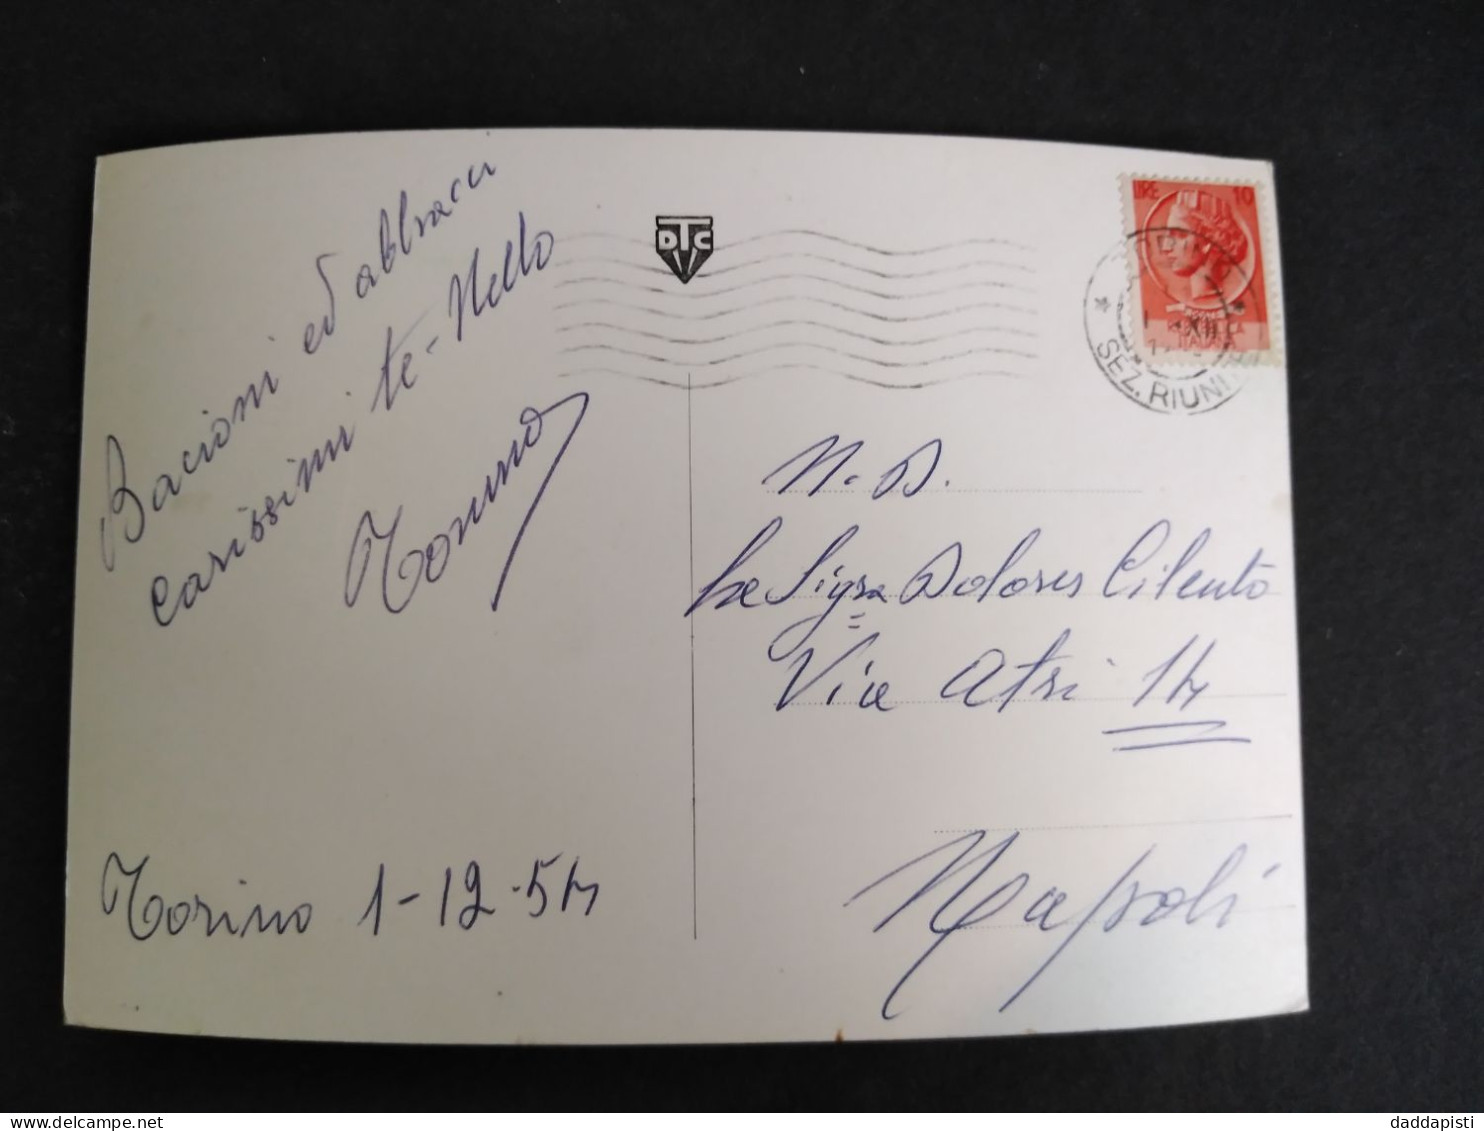 Bacioni ed abbracci
carissimi te - Nello
Tonino
Torino 1-12-54
DTC
LIRE 10
REPUBBLICA
ITALIANA
SEZ. RIUNITE
N. D.
La Sigra Dolores Cilento
Via Atri 14
Napoli
daddapisti